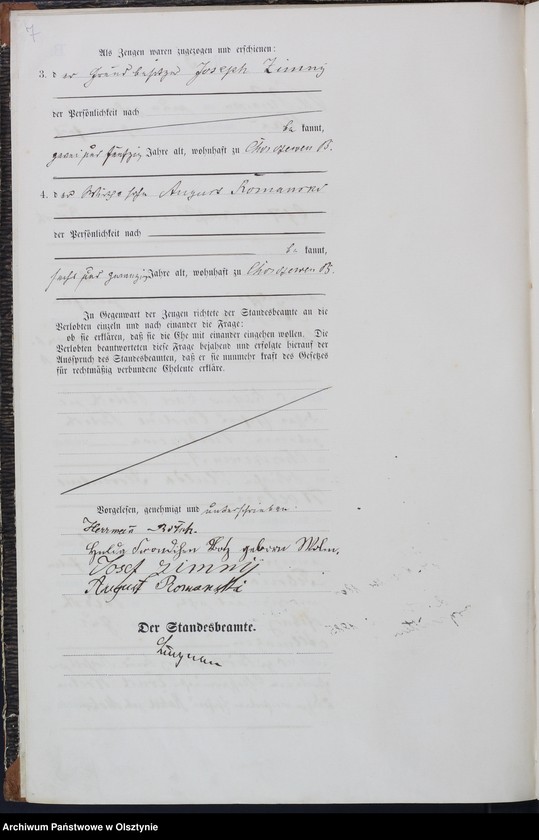 7
Als Zeugen waren zugezogen und erschienen:
3. der Grundbesitzer Joseph Zimny
der Persönlichkeit nach
be kannt,
zwei und fünfzig Jahre alt, wohnhaft zu
4. der August Romanski
der Persönlichkeit nach
be kannt,
sechs und zwanzig Jahre alt, wohnhaft zu
In Gegenwart der Zeugen richtete der Standesbeamte an die
Verlobten einzeln und nach einander die Frage:
ob sie erklären, daß sie die Ehe mit einander eingehen wollen. Die
Verlobten beantworteten diese Frage bejahend und erfolgte hierauf der
Ausspruch des Standesbeamten, daß er sie nunmehr kraft des Gesetzes
für rechtmäßig verbundene Eheleute erkläre.
Vorgelesen, genehmigt und unterschrieben
Herrmann
geborn
Josef Zimny
August Romanski
Der Standesbeamte.
Archiwum Państwowe w Olsztynie